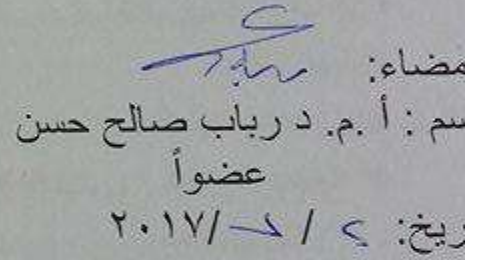 مضاء:
سم : أ .م. د رباب صالح حسن
عضواً
ريخ: / /٢٠١٧